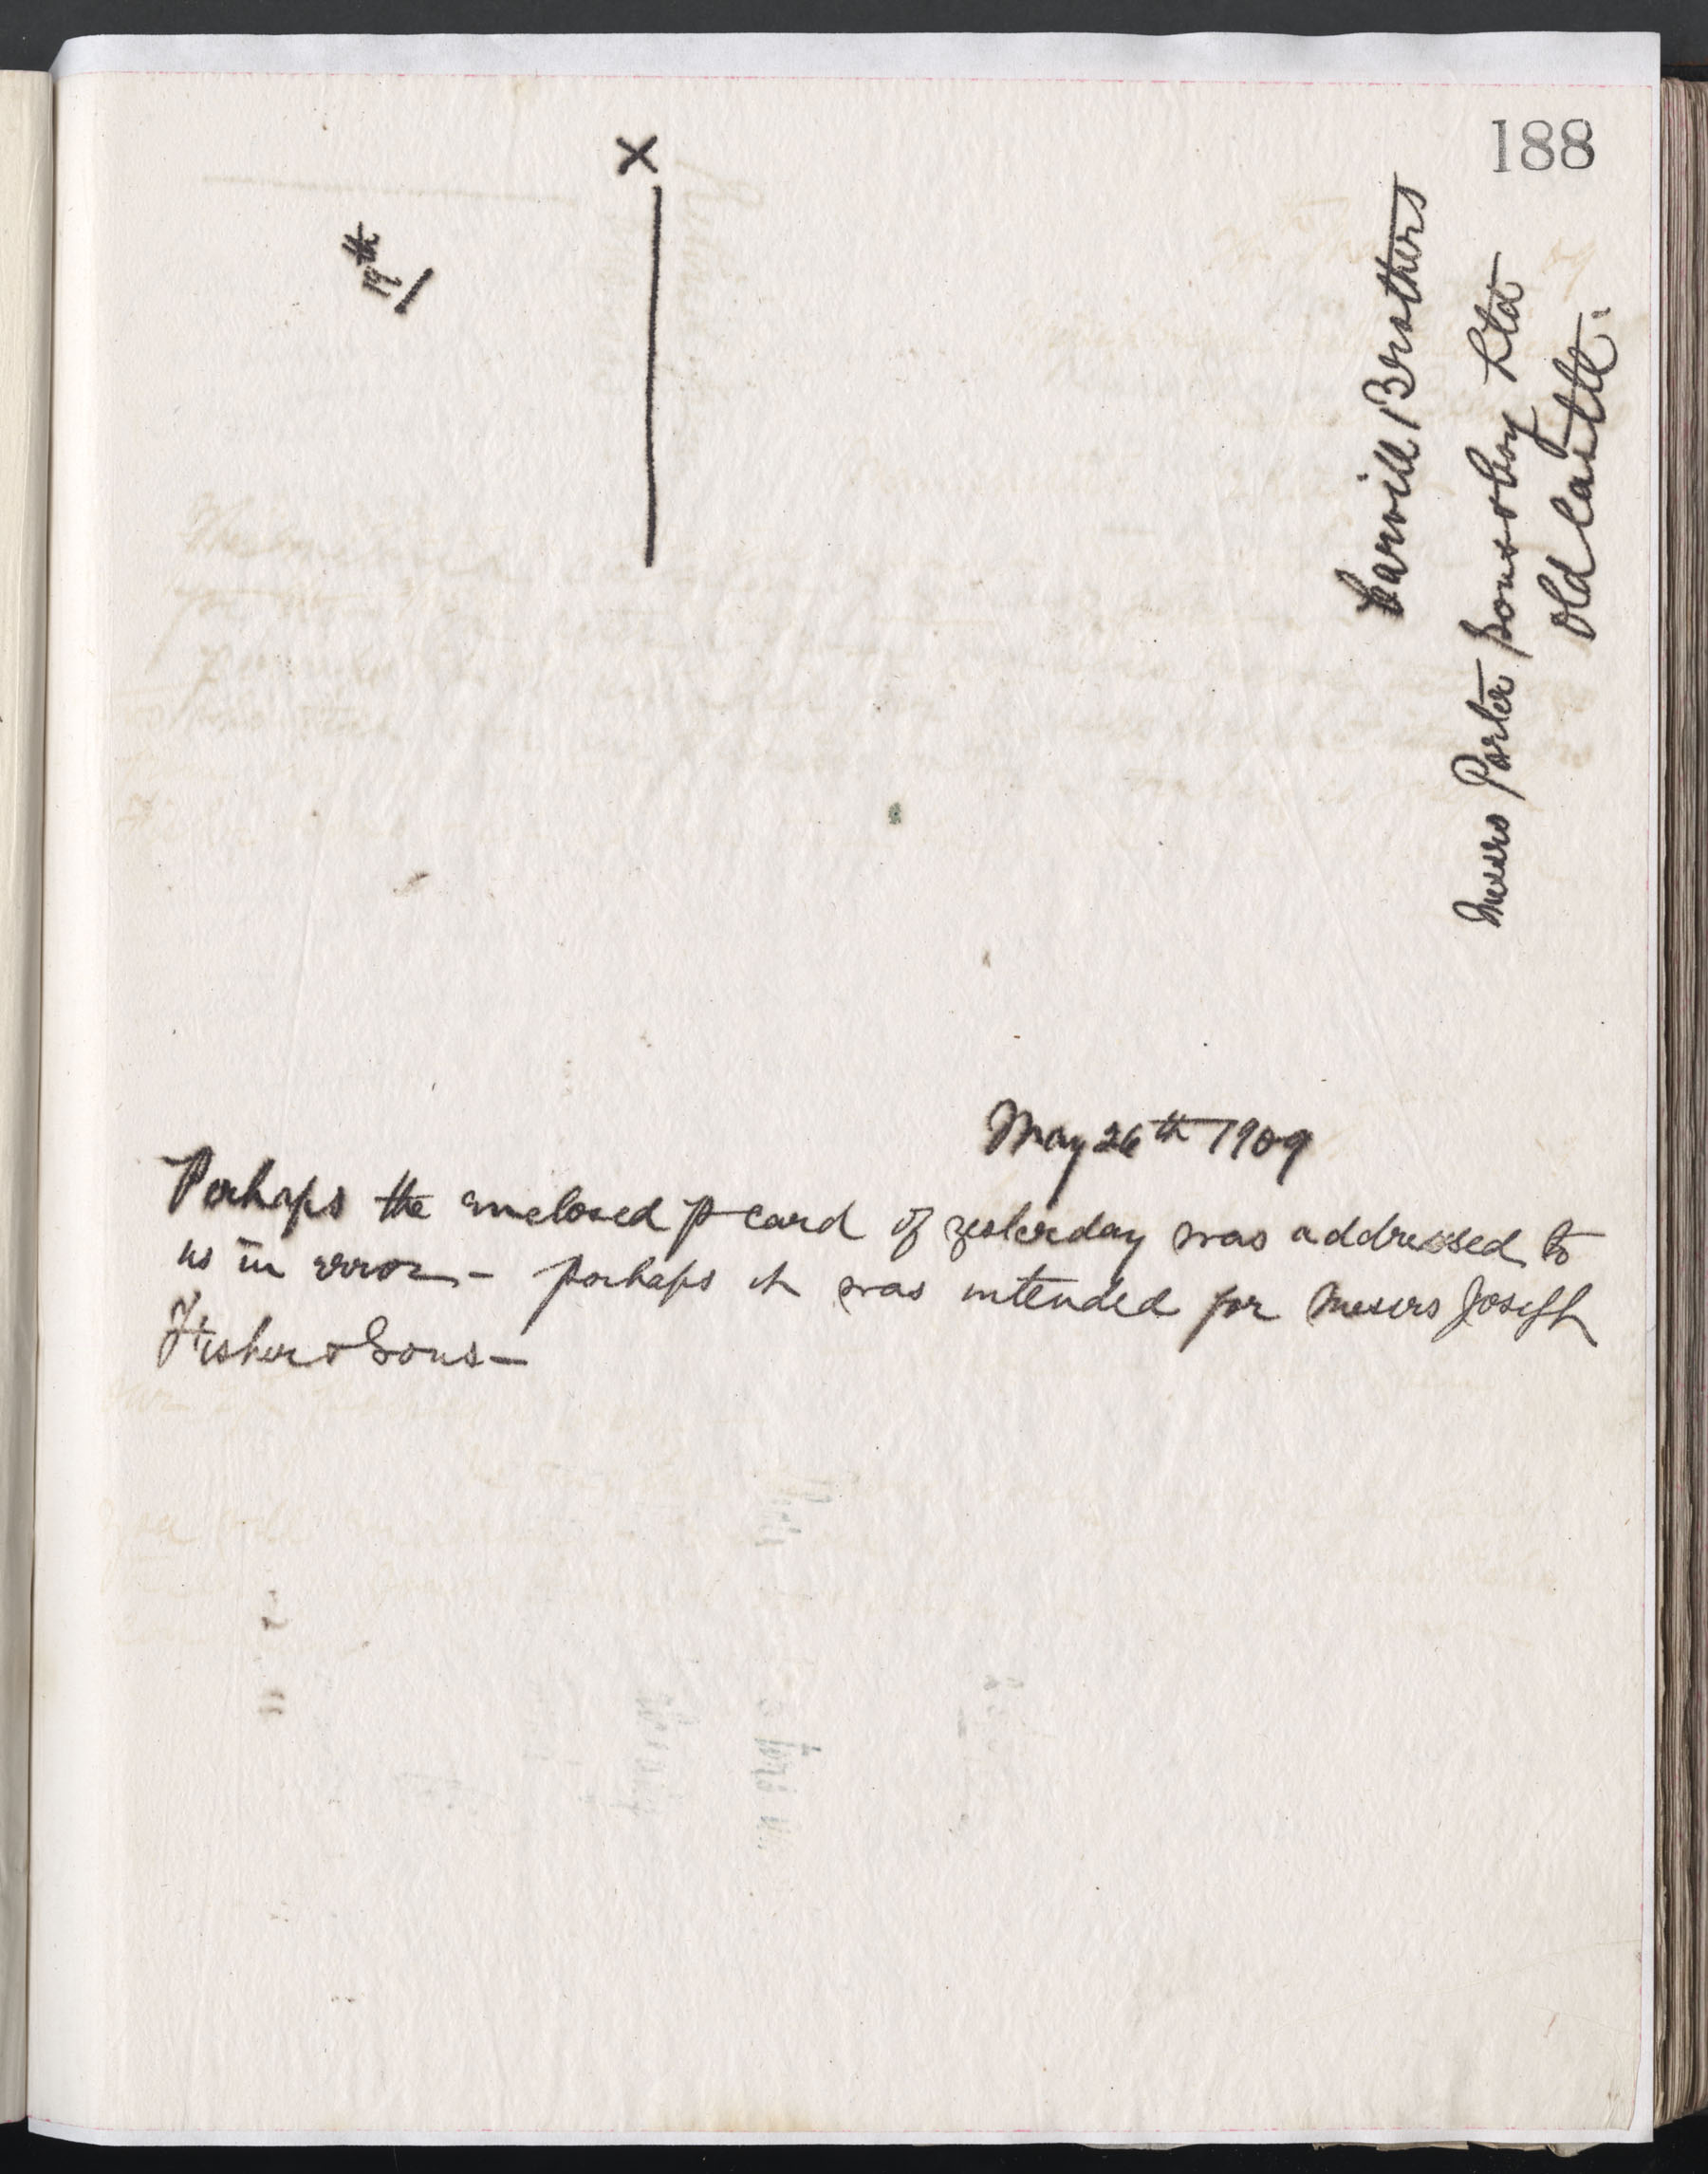 188
X
19th
Carvill Brothers
Messrs Porter Sons & Coy Ltd
Old Castle.
May 26th 1909
Perhaps the enclosed p card of yesterday was addressed to
us in error – perhaps it was intended for Messrs Joseph
Fisher & Sons –